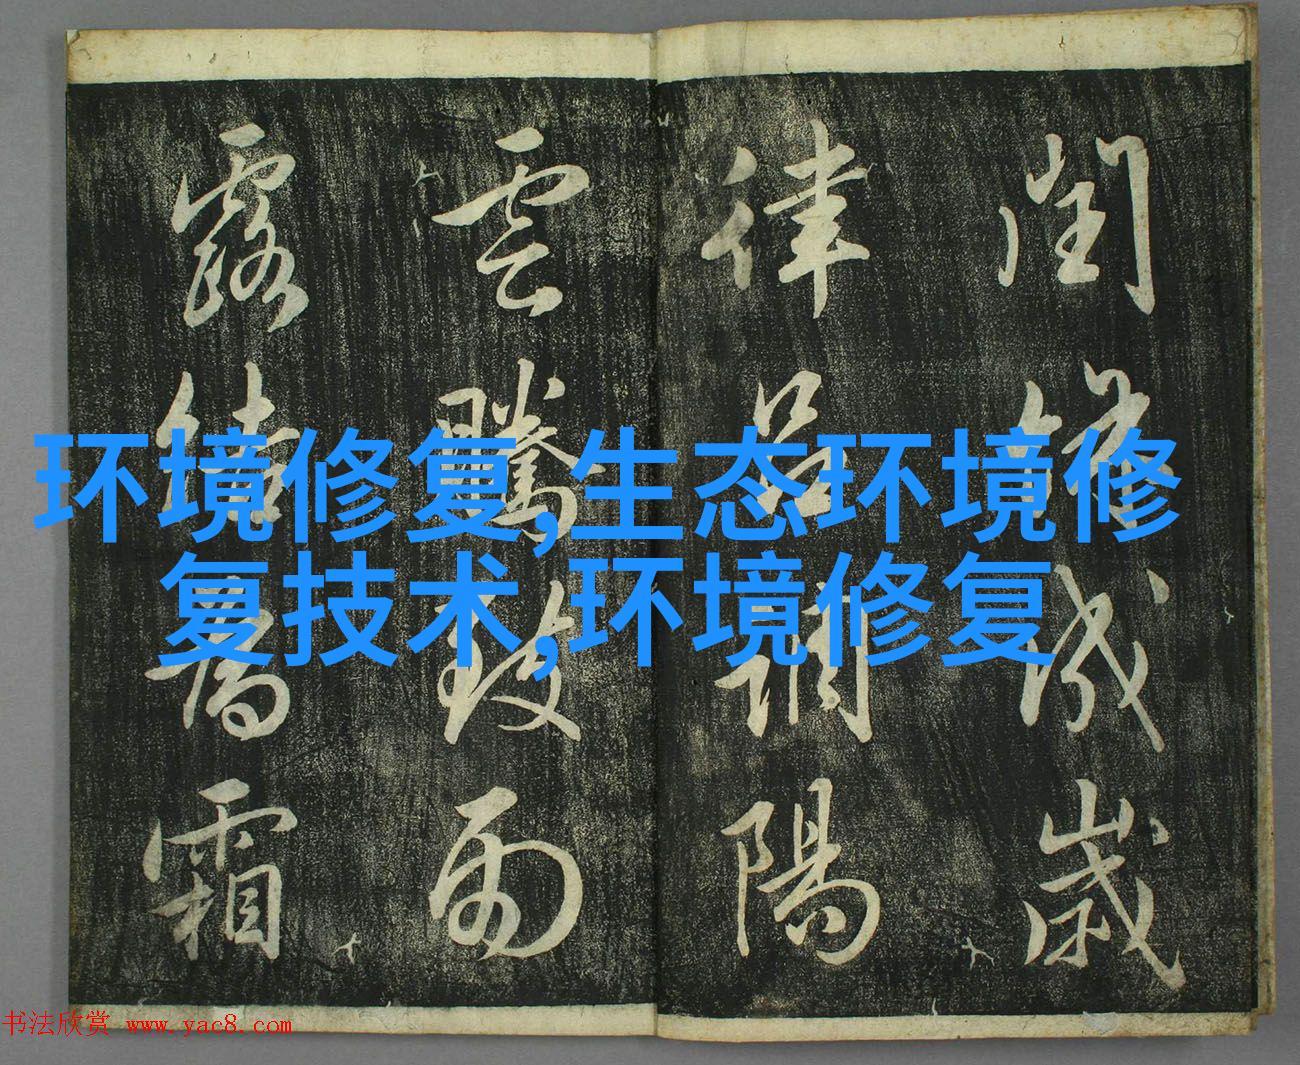 閏餘成歲
律呂調陽
雲騰致雨
露結為霜
环境修复,生态环境修
复技术,环境修复
书法欣赏 www.yac8.com